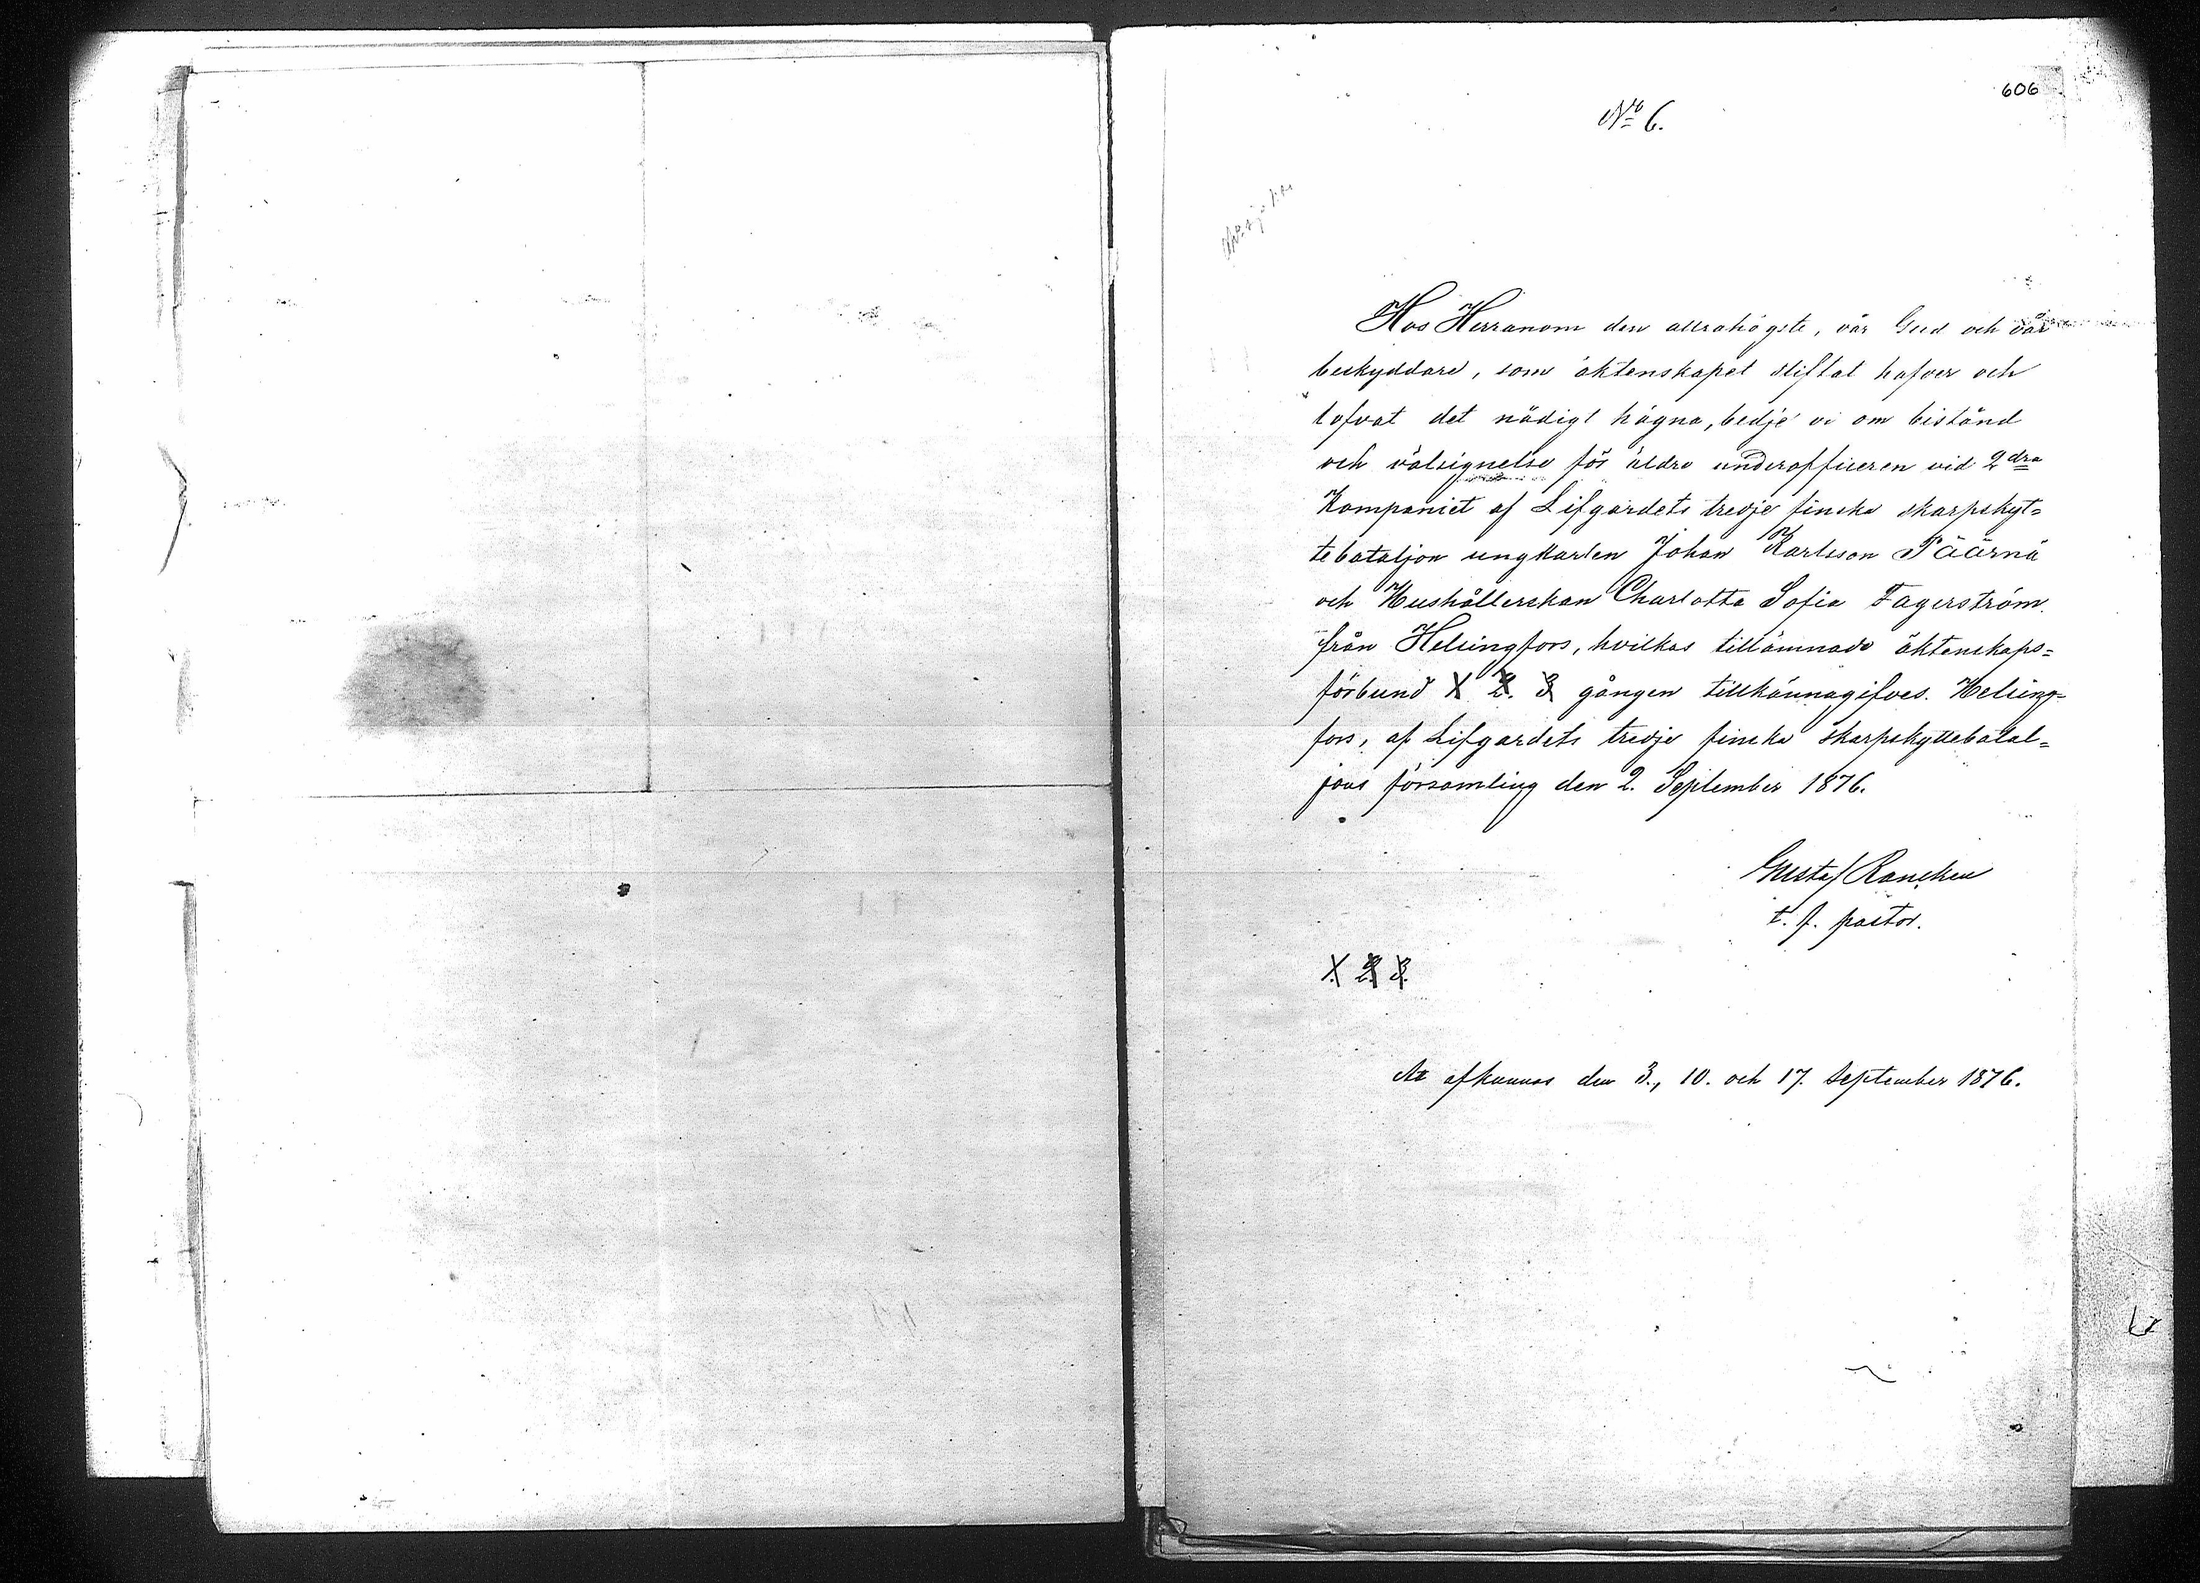 606
No 6.
Hos Herranom den allrahögste, vår Gud och vår
beskyddare, som äktenskapet stiftat hafver och
lofvat det nådigt hägna, bedje vi om bistånd
och välsignelse för äldre underofficeren vid 2dra
Kompaniet af Lifgardets tredje finska skarpskyt=
tebataljon ungkarlen Johan Karlsson Päärnä
och Hushållerskan Charlotta Sofia Fagerström
från Helsingfors, hvilkas tillämnade äktenskaps=
förbund 1. 2. 3. gången tillkännagifves. Helsing=
fors, af Lifgardets tredje finska skarpskyttebatal=
jons församling den 2. September 1876.
Gustaf Rancken
t. f. pastor.
1. 2. 3.
At afkunnas den 3., 10. och 17. September 1876.